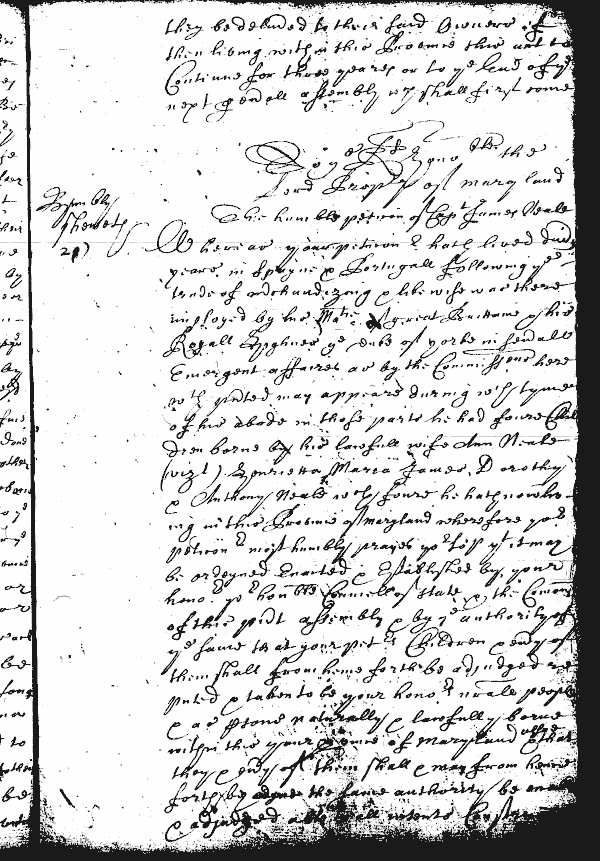 they be defended to their said Owners of
then living within this Province this act to
Continue for three yeares or to ye end of ye
next genall assembly wch shall first come
To ye Hono ble the
Lord Propry of maryland
The humble peticon of Capt James Neale
Assembly
Whereas your peticonr hath lived
yeares in Spayne & Portugall following ye
trade of merchandizing & likewise was there
imployed by his Matie of great Brittane & his
Royall Highnes ye duke of yorke in sevall
Emergent affaires as by the Comissions here
wth psented may appeare during wch tyme
of his abode in those parts he had foure Chil
dren borne by his lawfull wife Ann Neale
(vizt) Henrietta Maria James, Dorothy
& Anthony Neale wch foure he hath now liv-
ing in this Province of maryland wherefore yor
peticonr most humbly prayes yor Lopp yt it may
be ordeyned Enacted & Established by your
honor ye honble Councell of State & the Comons
of this psent assembly & by ye authority of
ye same that your petrs Children & every of
them shall from hence forth be adjudged re
puted & taken to be your honors people
& as those naturally & lawfully borne
within this your Province of Maryland & that
they & every of them shall & may from hence
forth be the same authority be
& adjudged all intents